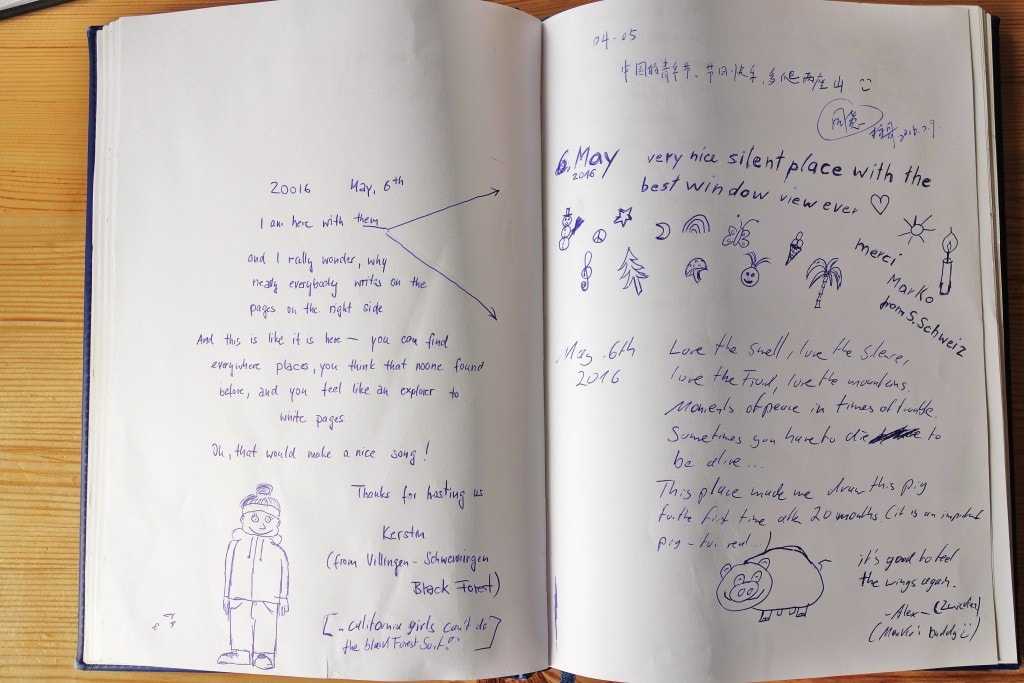 20016 May, 6th
I am here with them
and I really wonder, why
nearly everybody writes on the
pages on the right side
And this is like it is here – you can find
everywhere places, you think that noone found
before, and you feel like an explorer to
white pages
Oh, that would make a nice song!
Thanks for hosting us
Kerstin
(from Villingen - Schwenningen
Black Forest)
[".. california girls can't do
the black Forest Suit."]
04-05
中国的青年节、节日快乐,多爬两座山
6. May
2016
very nice silent place with the
best window view ever ♡
merci
Marko
from S. Schweiz
May. 6th
2016
Love the smell, love the
love the Food, love the mountains.
Moments of peace in times of trouble.
Sometimes you have to die to
be alive...
This place made me draw this pig
for the first time after 20 months. (it is an important
pig - for real...)
it's good to feel
the wings again.
- Alex -
(Marko's buddy